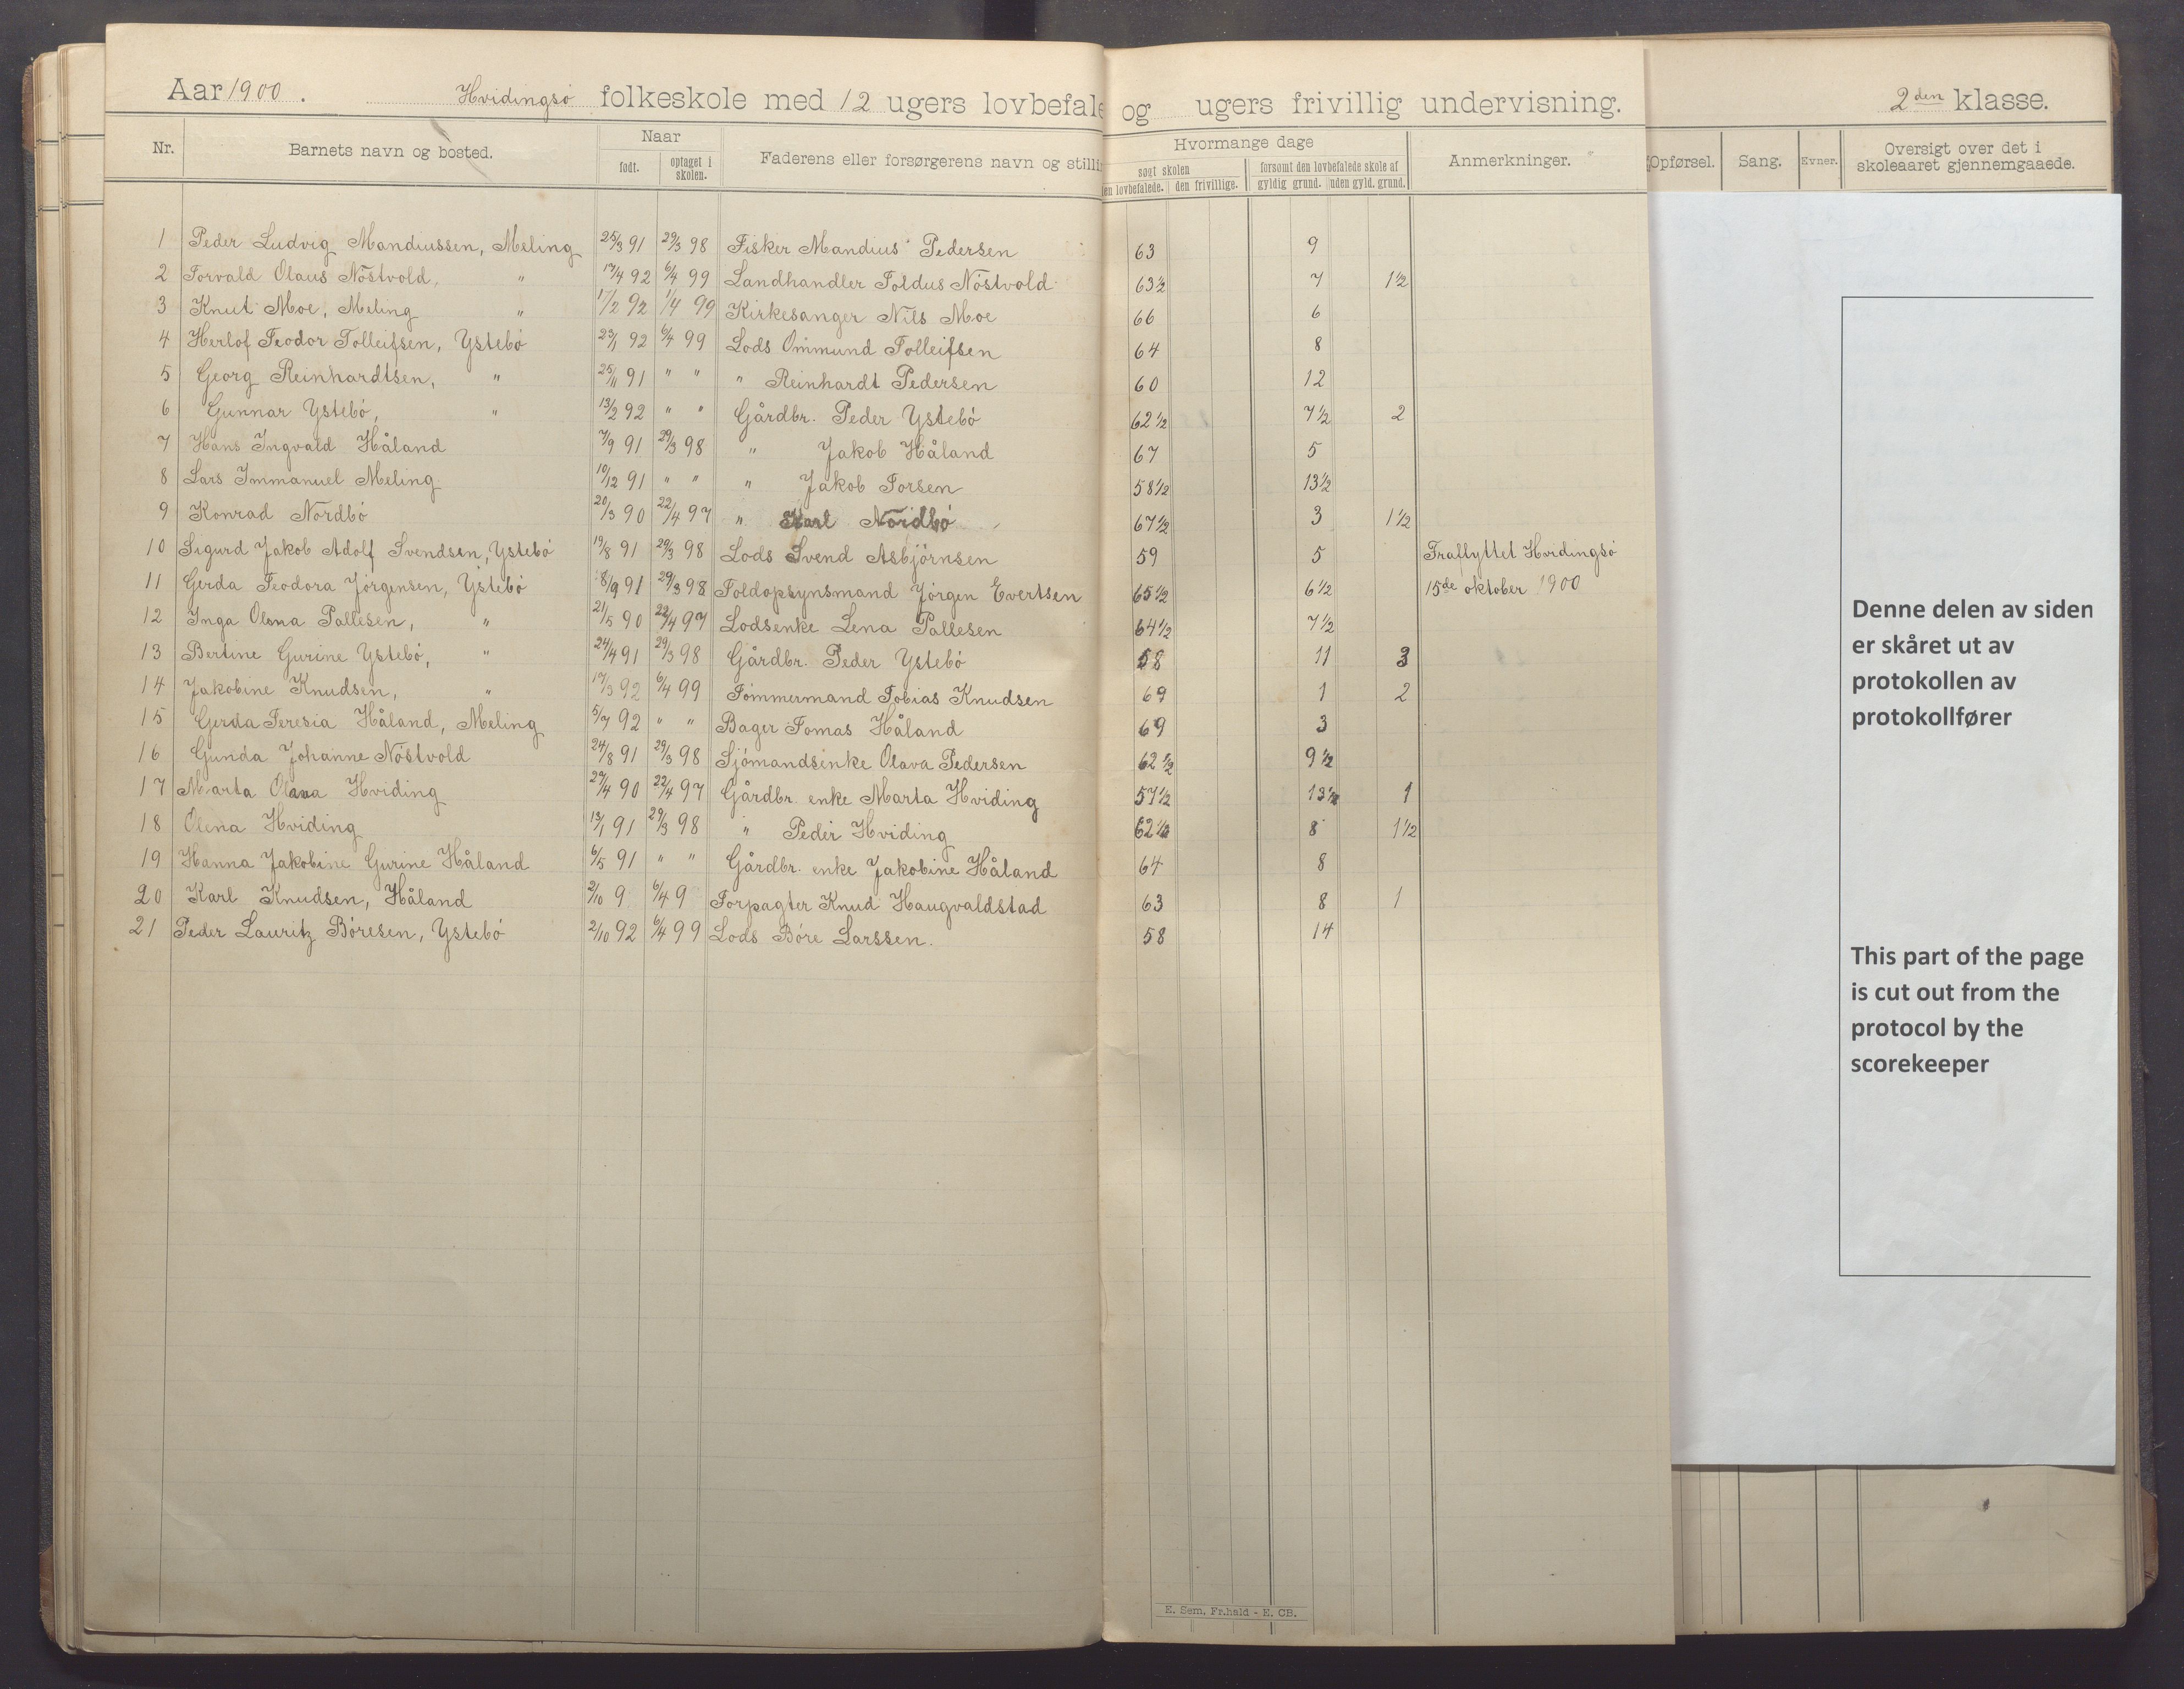 Aar 1900. Hvidingsö folkeskole med 12 ugers lovbefale og ugers frivillig undervisning. 2den klasse.
Nr. Barnets navn og bosted. Naar Faderens eller forsørgerens navn og stilli Hvormange dage Anmerkninger. Opførsel. Sang. Evner. Oversigt over det i skoleaaret gjennemgaaede.
født. optaget i skolen. søgt skolen forsømt den lovbefalede skole af
en lovbefalede. den frivillige. gyldig grund. uden gyld. grund.
1 Peder Ludvig Mandiussen, Meling 25/3 91 29/3 98 Fisker Mandius Pedersen 63 9
2 Torvald Olaus Nöstvold, " 17/4 92 6/4 99 Landhandler Toldus Nöstvold 63½ 7 1½
3 Knut Moe, Meling " 17/2 92 1/4 99 Kirkesanger Nils Moe 66 6
4 Herlof Teodor Tolleifsen, Ystebö 23/1 92 6/4 99 Lods Ommund Tolleifsen 64 8
5 Georg Reinhardtsen, " 25/11 91 " " " Reinhardt Pedersen 60 12
6 Gunnar Ystebö, " 13/2 92 " " Gårdbr. Peder Ystebö 62½ 7½ 2
7 Hans Ingvald Håland 7/9 91 29/3 98 " Jakob Håland 67 5
8 Lars Immanuel Meling 10/12 91 " " " Jakob Torsen 58½ 13½
9 Konrad Nordbö 20/3 90 22/4 97 " Karl Nordbö 67½ 3 1½
10 Sigurd Jakob Adolf Svendsen, Ystebö 19/8 91 29/3 98 Lods Svend Asbjörnsen 59 5 Fraflyttet Hvidingsö
11 Gerda Teodora Jörgensen, Ystebö 8/9 91 29/3 98 Toldopsynsmand Jörgen Evertsen 65½ 6½ 15de oktober 1900
12 Inga Olena Pallesen, " 21/5 90 22/4 97 Lodsenke Lena Pallesen 64½ 7½
13 Bertine Gurine Ystebö, " 24/4 91 29/3 98 Gårdbr. Peder Ystebö 58 11 3
14 Jakobine Knudsen, " 17/3 92 6/4 99 Tömmermand Tobias Knudsen 69 1 2
15 Gerda Teresia Håland, Meling 5/7 92 " " Bager Tomas Håland 69 3
16 Gunda Johanne Nöstvold 24/8 91 29/3 98 Sjömandsenke Olava Pedersen 62½ 9½
17 Marta Olava Hviding 29/4 90 22/4 97 Gårdbr. enke Marta Hviding 57½ 13½ 1
18 Olena Hviding 13/1 91 29/3 98 " Peder Hviding 62½ 8 1½
19 Hanna Jakobine Gurine Håland 6/5 91 " " Gårdbr. enke Jakobine Håland 64 8
20 Karl Knudsen, Håland 2/10 9 6/4 9 Forpagter Knud Haugvaldstad 63 8 1
21 Peder Lauritz Böresen, Ystebö 2/10 92 6/4 99 Lods Böre Larssen. 58 14
E. Sem, Fr.hald - E. CB.
Denne delen av siden
er skåret ut av
protokollen av
protokollfører
This part of the page
is cut out from the
protocol by the
scorekeeper